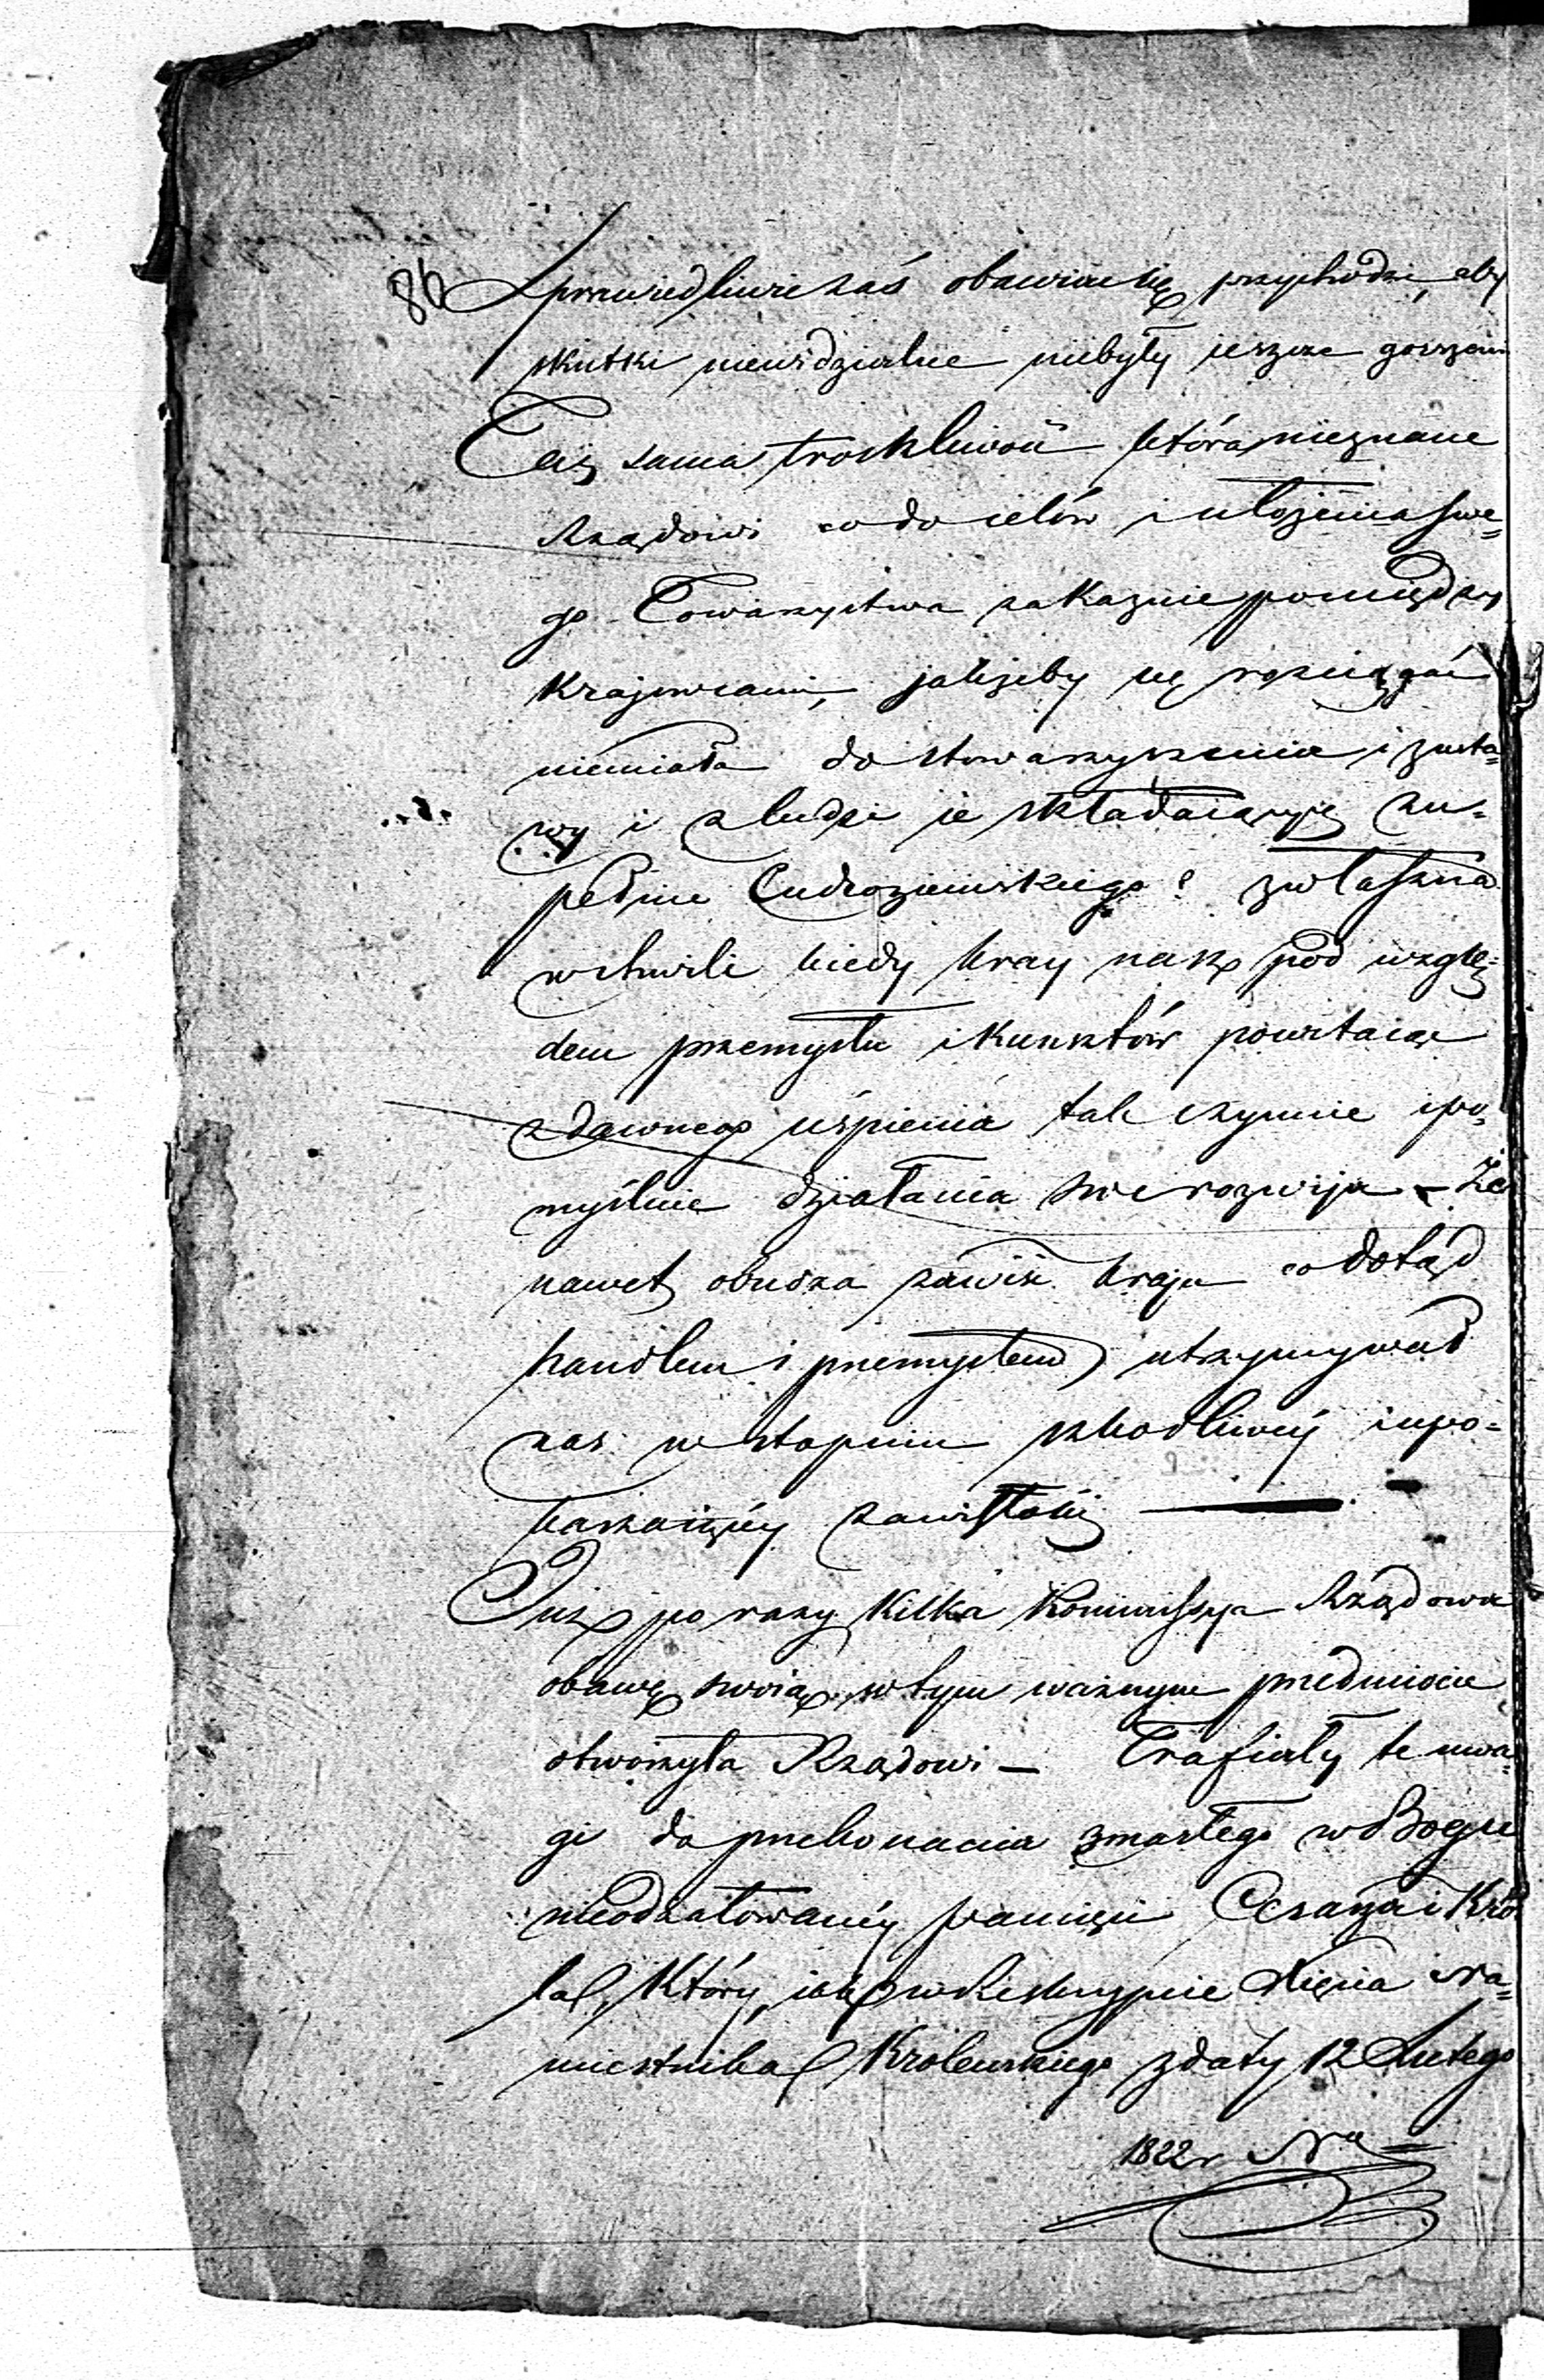 86 Sprawiedliwie zaś obawiać się przychodzi, aby
skutki niewidzialne niebyły ieszcze gorszemi
Taż sama troskliwość która nieznane
Rządowi co do celów i ułożenia swe=
go Towarzystwa zakaznie pomiędzy
Krajowcami, jakżeby się rosciągać
niemiała do stowarzyszenia i z usta=
wy i z ludzi je składaiących zu=
pełnie Cudzoziemskiego? zwłaszcza
w chwili kiedy kray nasz pod wzglę=
dem przemysłu i Kunsztów powstaiąc
z dawnego uśpienia tak czynnie i po=
myślnie działania swe rozwija – Że
nawet obudza zawiść kraju co dotąd
handlem i przemysłem utrzymywał
nas w stopniu szkodliwéy i upo=
karzaiącéy zawisłości —
Już po razy Kilka Kommissya Rządowa
obawę swoią w tym ważnym przedmiocie
otworzyła Rządowi – Trafiały te uwa=
gi do przekonania zmarłego w Bogu
nieodżałowanéy pamięci Cesarza i Kró
la, Który, iak w Reskrypcie Xięcia Na=
miestnika Królewskiego z daty 12 Lutego
1822 r Nra =